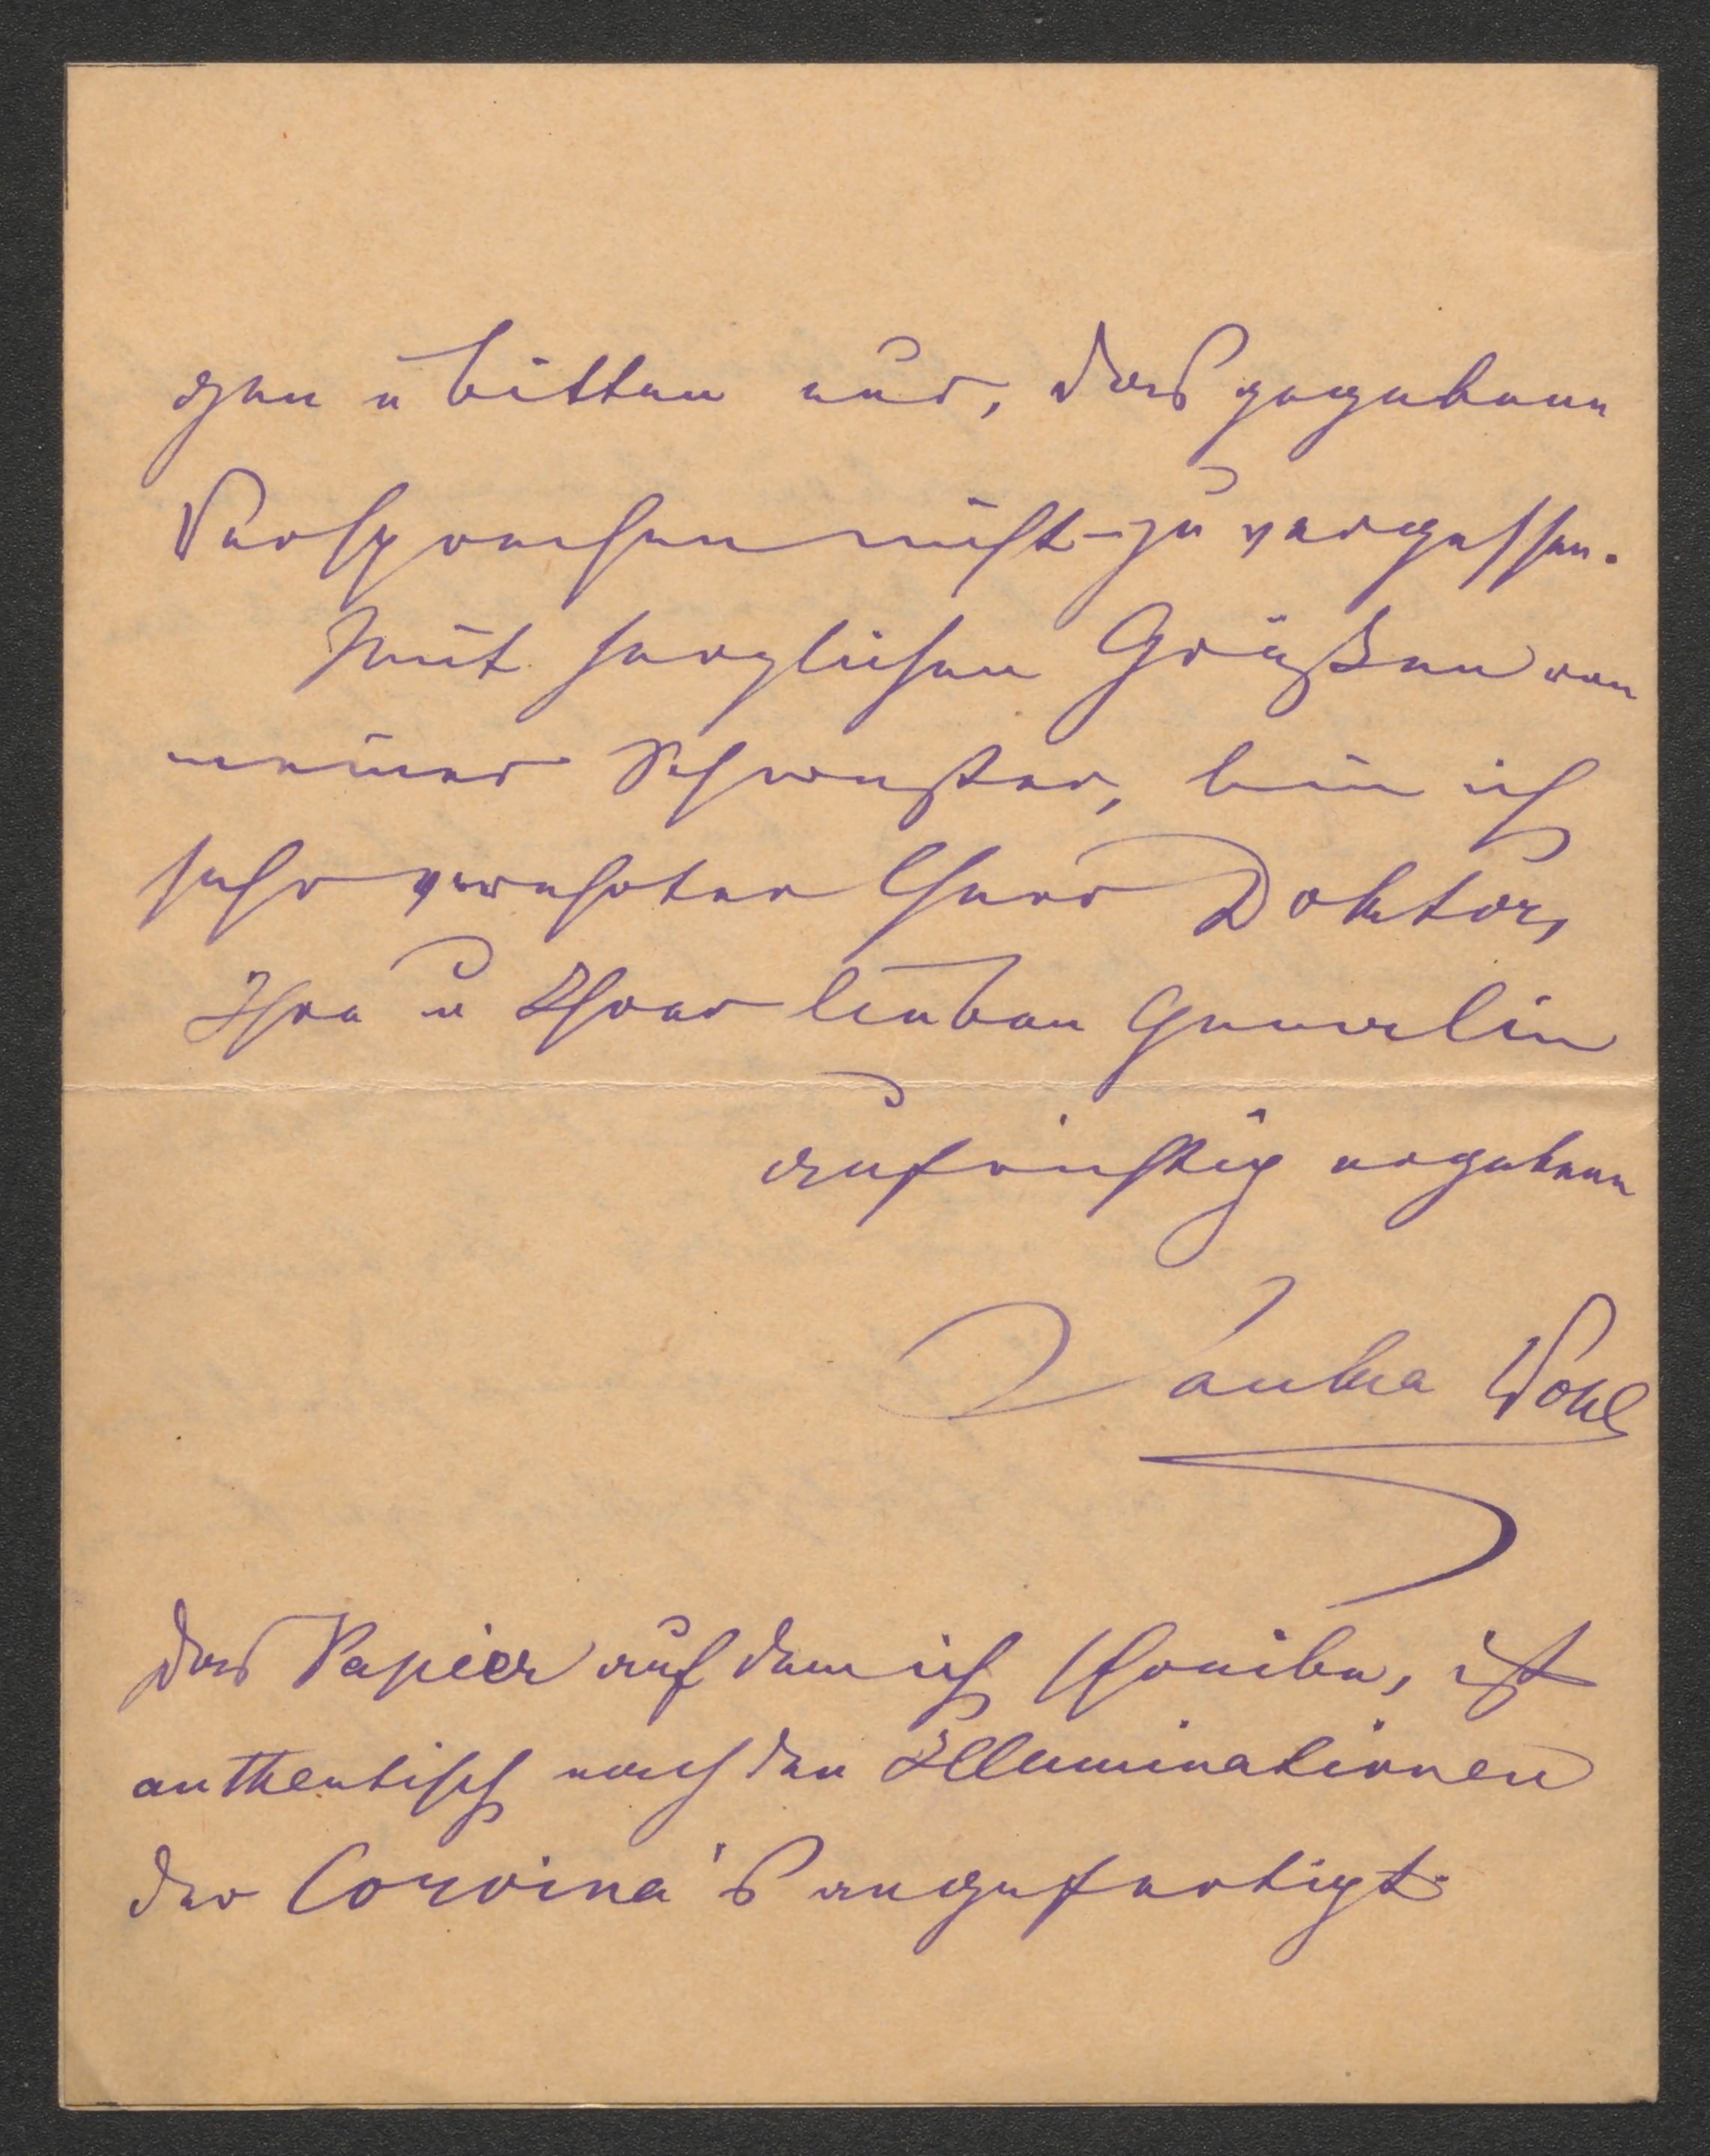 gen u bitten nur, das gegebene
Versprechen nicht zu vergessen.
Mit herzlichen Grüßen von
meiner Schwester, bin ich
sehr verehrter Herr Doktor,
Ihre u Ihrer lieben Gemalin
aufrichtig ergebene
Janka Wohl
Das Papier auf dem ich schreibe, ist
authentisch nach den Illuminationen
der Corvina's angefertigt.